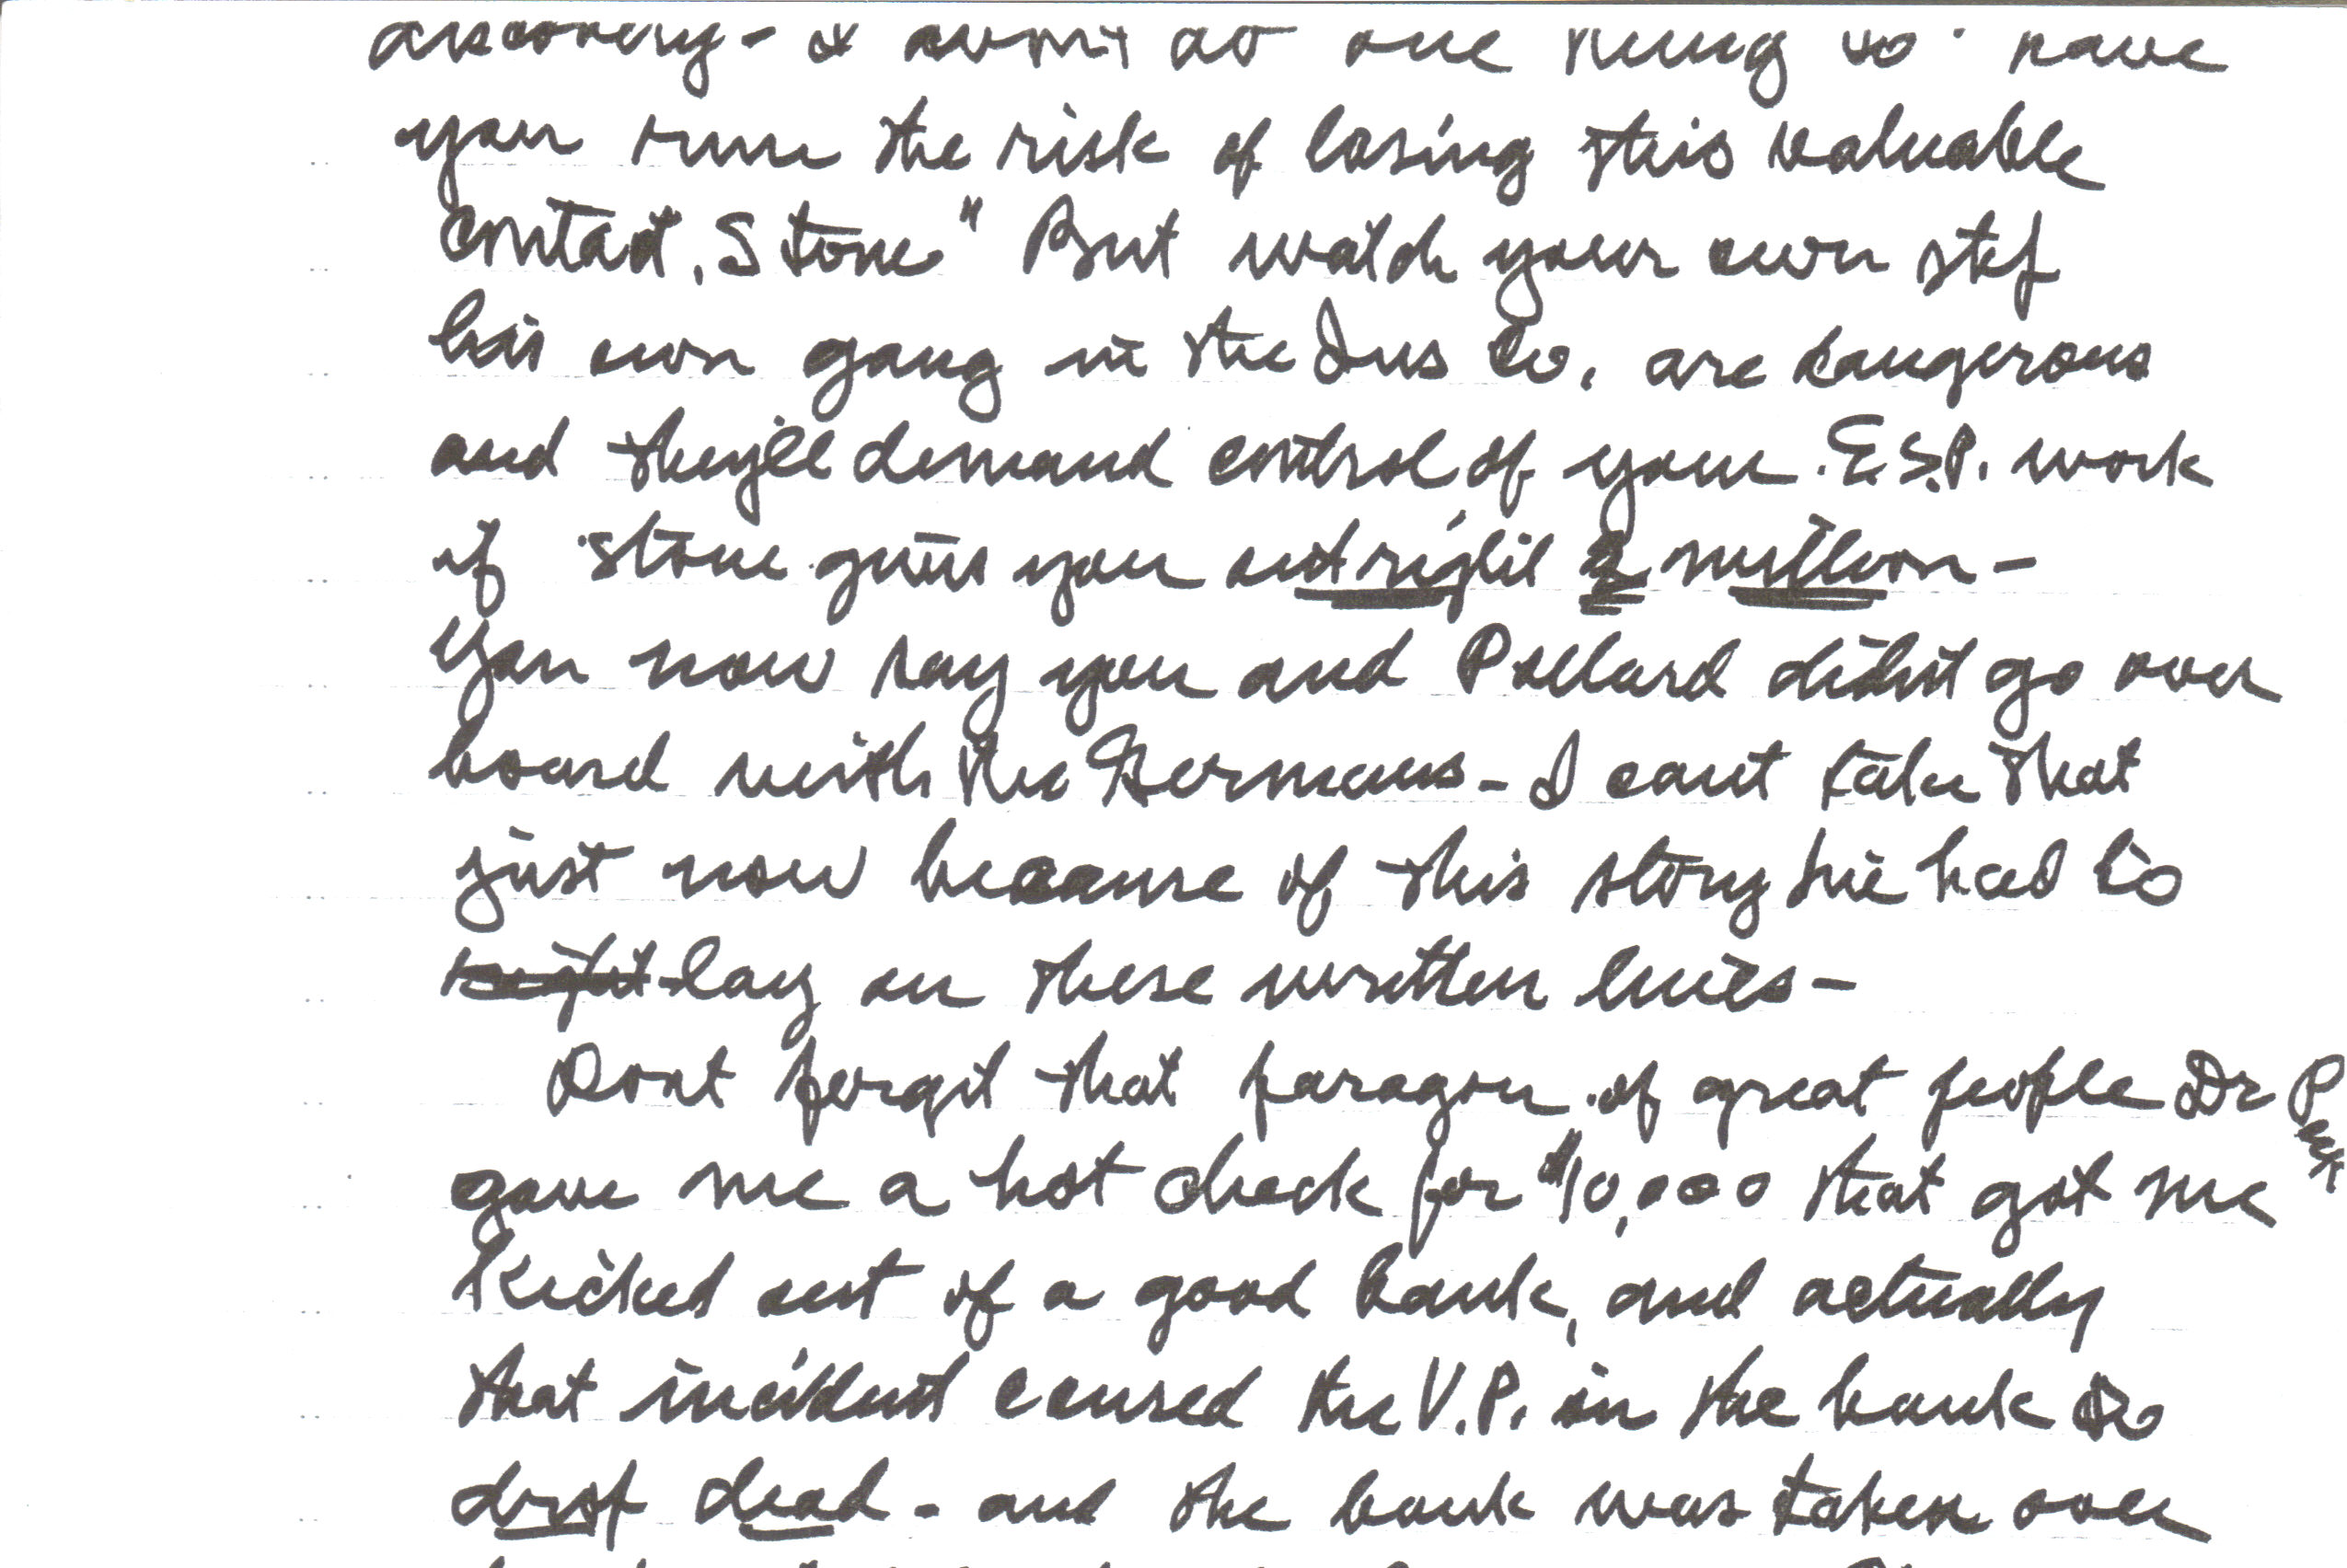 discovery - I won't do one thing to have
you run the risk of losing this valuable
contact, Stone" But watch your own step
his own gang in the Ins Co, are dangerous
and they'll demand control of your E.S.P. work
if Stone gives you outright 2 million -
You now say you and Pollard didn't go over
board with the Germans - I cant take that
just now because of this story he had to
lay on these written lines -
Dont forget that paragon of great people Dr
gave me a hot check for $10,000 that got me
kicked out of a good bank, and actually
that incident caused the V.P. in the bank to
drop dead - and the bank was taken over